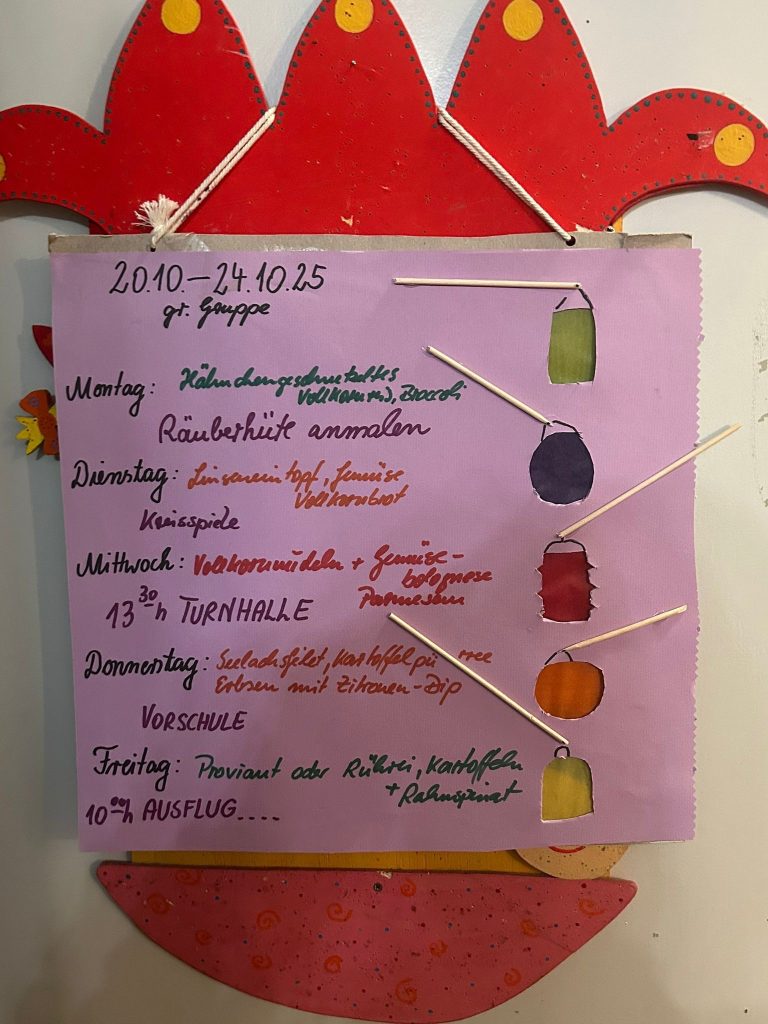 20.10.-24.10.25
gr. Gruppe
Montag: Hähnchengeschnetzeltes
Vollkornreis, Broccoli
Räuberhüte anmalen
Dienstag: Linseneintopf, Gemüse
Vollkornbrot
Kreisspiele
Mittwoch: Vollkornnudeln + Gemüse-
bolognese
Parmesam
13 30 h TURNHALLE
Donnerstag: Seelachsfilet, Kartoffelpü ree
Erbsen mit Zitronen-Dip
VORSCHULE
Freitag: Proviant oder Rührei, Kartoffeln
+ Rahmspinat
10 00 h AUSFLUG....